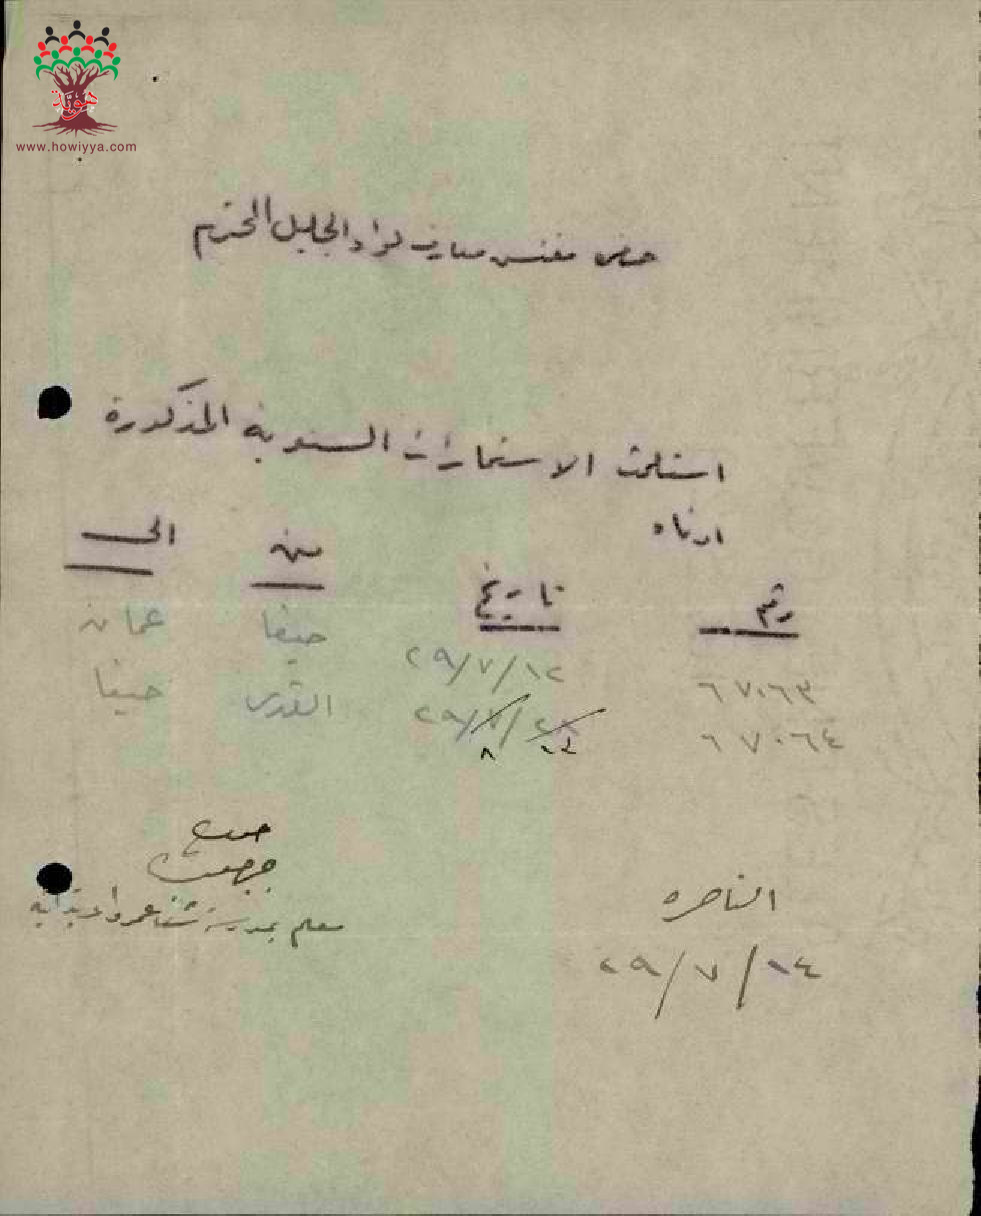 هوية
www.howiyya.com
حضرة مفتش معارف لواء الجليل المحترم
استلمت الاستمارات السنوية المذكورة
ادناه
رقم تاريخ من الى
٦٧٠٦٣ ١٢/٧/٢٩ حيفا عمان
٦٧٠٦٤ /٧/٢٩ القدس حيفا
٨ ١٤
معلم بمدرسة شفاعمرو الابتدائية
الناصره
١٤/٧/٢٩